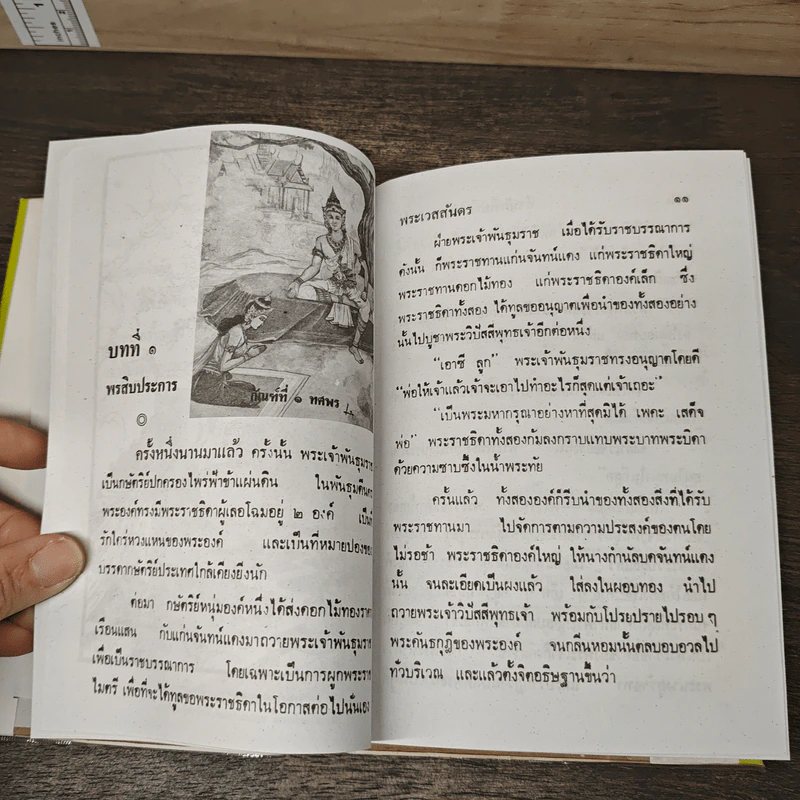 บทที่ ๑
พรสิบประการ
กัณฑ์ที่ ๑ ทศพร
ครั้งหนึ่งนานมาแล้ว ครั้งนั้น พระเจ้าพันธุมราช
เป็นกษัตริย์ปกครองไพร่ฟ้าข้าแผ่นดิน ในพันธุมดีนคร
พระองค์ทรงมีพระราชธิดาผู้เลอโฉมอยู่ ๒ องค์ เป็นที่
รักใคร่หวงแหนของพระองค์ และเป็นที่หมายปองของ
บรรดากษัตริย์ประเทศใกล้เคียงยิ่งนัก
ต่อมา กษัตริย์หนุ่มองค์หนึ่งได้ส่งดอกไม้ทองราคา
เรือนแสน กับแก่นจันทน์แดงมาถวายพระเจ้าพันธุมราช
เพื่อเป็นราชบรรณาการ โดยเฉพาะเป็นการผูกพระราช
ไมตรี เพื่อที่จะได้ทูลขอพระราชธิดาในโอกาสต่อไปนั่นเอง
พระเวสสันดร ๑๑
ฝ่ายพระเจ้าพันธุมราช เมื่อได้รับราชบรรณาการ
ดังนั้น ก็พระราชทานแก่นจันทน์แดง แก่พระราชธิดาใหญ่
พระราชทานดอกไม้ทอง แก่พระราชธิดาองค์เล็ก ซึ่ง
พระราชธิดาทั้งสอง ได้ทูลขออนุญาตเพื่อนำของทั้งสองอย่าง
นั้นไปบูชาพระวิปัสสีพุทธเจ้าอีกต่อหนึ่ง
"เอาซี ลูก" พระเจ้าพันธุมราชทรงอนุญาตโดยดี
"พ่อให้เจ้าแล้วเจ้าจะเอาไปทำอะไรก็สุดแต่เจ้าเถอะ"
"เป็นพระมหากรุณาอย่างหาที่สุดมิได้ เพคะ เสด็จ
พ่อ" พระราชธิดาทั้งสองก้มลงกราบแทบพระบาทพระบิดา
ด้วยความซาบซึ้งในน้ำพระทัย
ครั้นแล้ว ทั้งสององค์ก็รีบนำของทั้งสองสิ่งที่ได้รับ
พระราชทานมา ไปจัดการตามความประสงค์ของตนโดย
ไม่รอช้า พระราชธิดาองค์ใหญ่ ให้นางกำนัลบดจันทน์แดง
นั้น จนละเอียดเป็นผงแล้ว ใส่ลงในผอบทอง นำไป
ถวายพระเจ้าวิปัสสีพุทธเจ้า พร้อมกับโปรยปรายไปรอบๆ
พระคันธกุฎีของพระองค์ จนกลิ่นหอมนั้นตลบอบอวลไป
ทั่วบริเวณ และแล้วตั้งจิตอธิษฐานขึ้นว่า